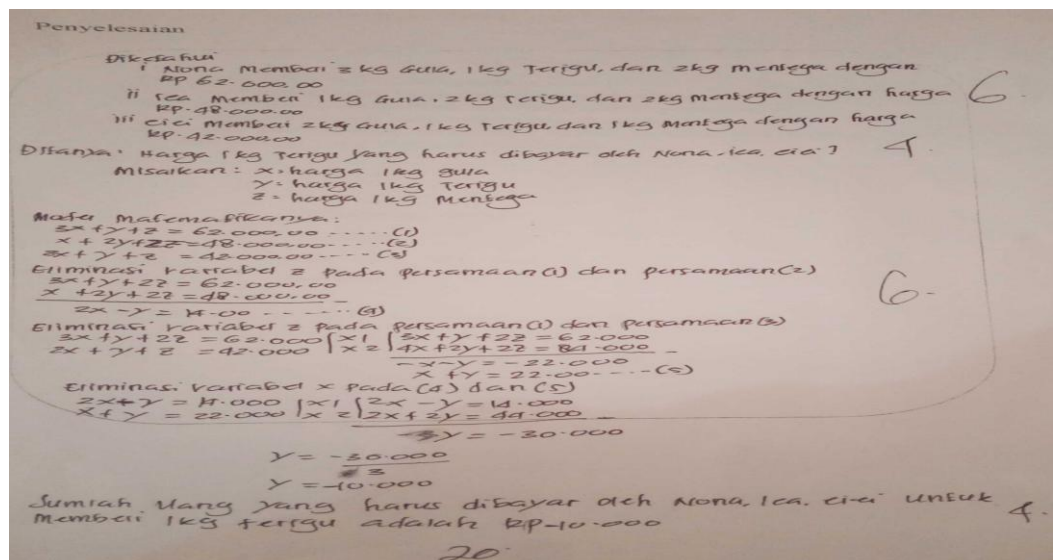 Penyelesaian
Diketahui
i Nona Membeli 3 kg Gula, 1 kg Terigu, dan 2kg mentega dengan
RP 62.000,00
ii Ica Memberi 1kg Gula, 2kg Terigu, dan 2kg Mentega dengan harga 6
RP.48.000.00
iii cici membeli 2kg Gula, 1kg Terigu, dan 1kg Mentega dengan harga
RP.42.000.00
Ditanya: Harga 1kg Terigu yang harus dibayar oleh Nona, ica, cici? 4.
Misalkan: x = harga 1kg gula
y = harga 1kg Terigu
z = harga 1kg Mentega
Matematikanya:
3x+y+z = 62.000,00 ..... (1)
x + 2y+2z = 48.000.00 ..... (2)
2x+y+z = 42.000.00 .... (3)
Eliminasi variabel z pada persamaan (1) dan persamaan (2) 6.
3x+y+2z = 62.000,00
x +2y+2z = 48.000,00 _
2x - y = 14.00 ..... (4)
Eliminasi variabel z pada persamaan (1) dan persamaan (3)
3x+y+2z = 62.000 | x1 | 3x+y+2z = 62.000
2x+y+z = 42.000 | x2 | 4x+2y+2z = 84.000 _
-x-y = -22.000
x+y = 22.00 .... (5)
Eliminasi variabel x pada (4) dan (5)
2x-y = 14.000 | x1 | 2x - y = 14.000
x+y = 22.000 | x2 | 2x+2y = 44.000 _
-3y = -30.000
y = -30.000
3
y = -10.000
Jumlah Uang yang harus dibayar oleh Nona, Ica, cici untuk 4.
Memberi 1kg terigu adalah RP-10.000
20.